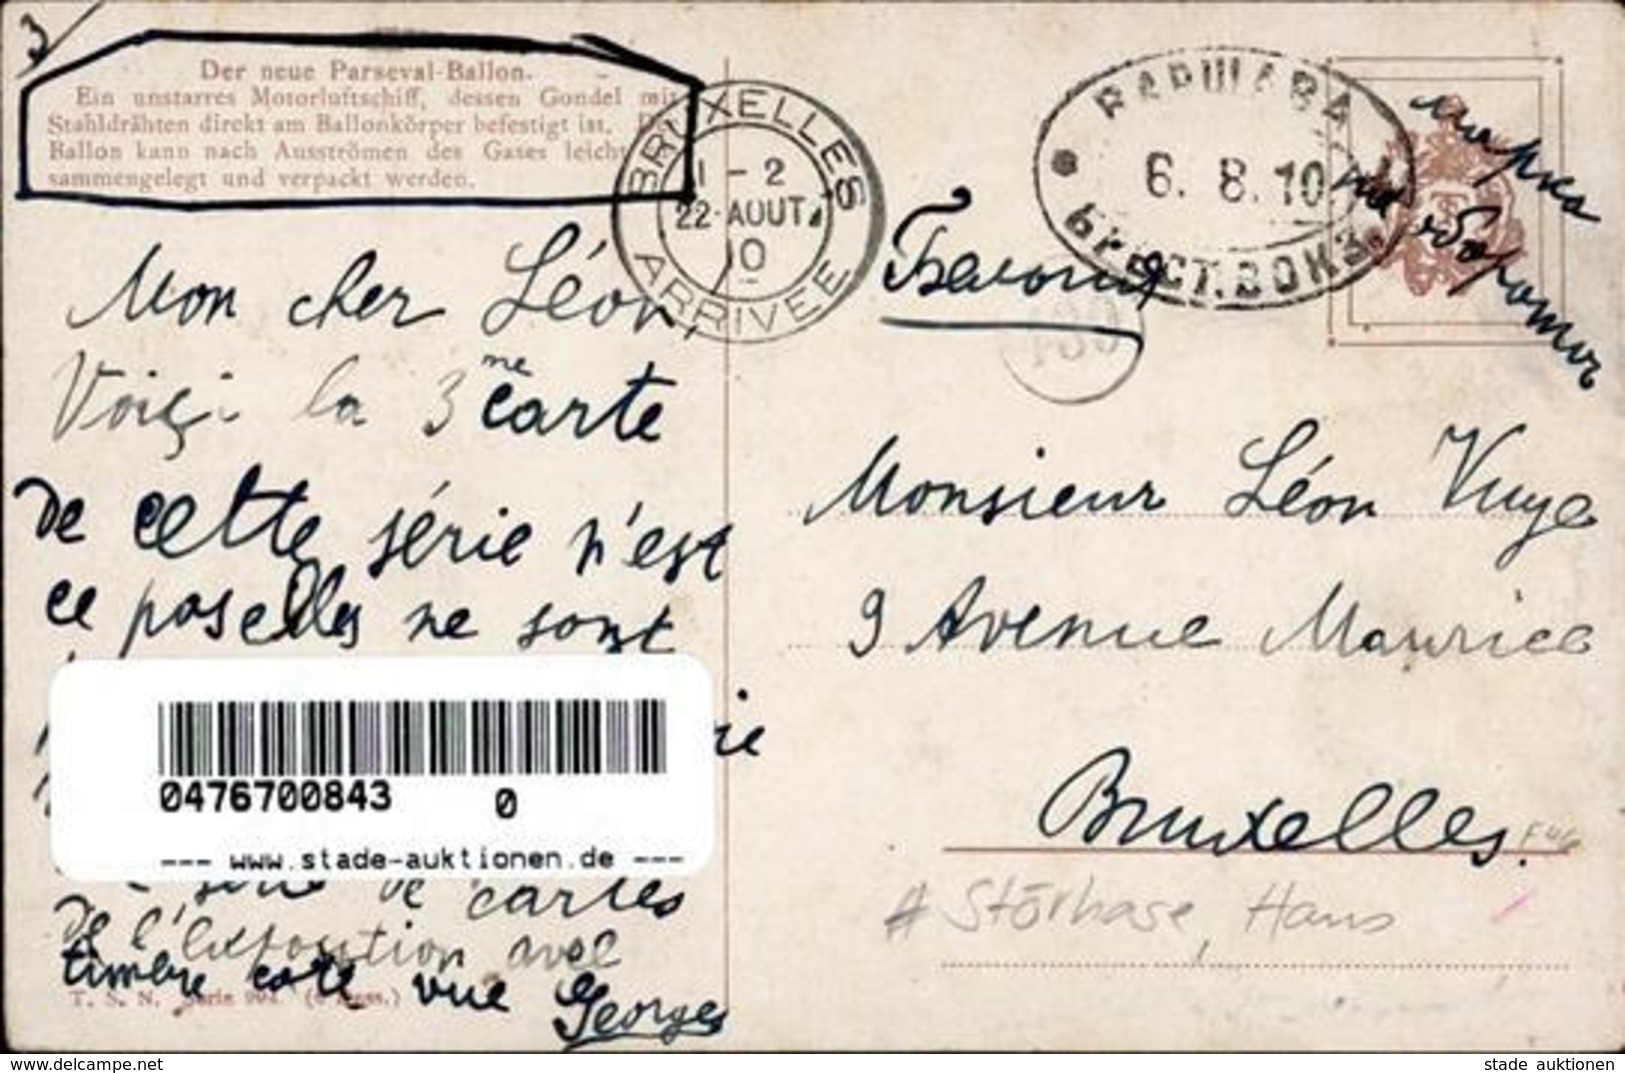 3
Der neue Parseval-Ballon.
Ein unstarres Motorluftschiff, dessen Gondel mit
Stahldrähten direkt am Ballonkörper befestigt ist.
Ballon kann nach Ausströmen des Gases leicht
sammengelegt und verpackt werden.
BRUXELLES
1-2
22 AOUT
10
ARRIVÉE
ВАРШАВА
6. 8. 10
БРЕСТ. ВОКЗ.
марка
на обороте
139
Mon cher Léon,
Voiçi la 3me carte
De cette série n'est
ce pas elles ne sont
ie
série de cartes
De l'Exposition avec
timbre coté vue
Georges
T. S. N. Serie 994 (6 Dess.)
Monsieur Léon Vuye
9 Avenue Maurice
Bruxelles.
# Störhase, Hans
0476700843 0
--- www.stade-auktionen.de ---
www.delcampe.net
stade auktionen